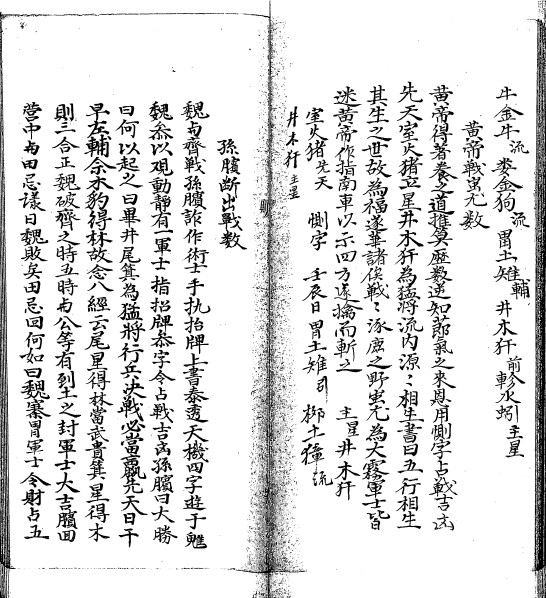 牛金牛 流 婁金狗 流 胃土雉 輔 井木犴 前 軫水蚓 主星
黃帝戰蚩尤數
黃帝得著養之道推筭歷數逆知節氣之來思用惻字占戰吉凶
先天室火猪立星井木犴為猛將流內源〻相生書曰五行相生
其生之世故為福遂華諸侯戰〻涿鹿之野蚩尤為大霧軍士皆
迷黃帝作指南車以示四方遂擒而斬之 主星井木犴
室火猪 先天 惻字 壬辰日胃土雉引 柳土獐 流
井木犴 主星
孫臏斷出戰數
魏与齊戰孫臏詐作術士手执招牌上書泰透天機四字遊于魋
魏叅以观動静有一軍士指招牌叅字令占戰吉凶孫臏曰大勝
曰何以起之曰畢井尾箕為猛將行兵决戰必當贏先天日干
早左輔佘木豹得林故念八經云尾星得林當武貴箕星得木
則三合正魏破齊之時五時与公等有列土之封軍士大吉臏回
營中与田忌議曰魏敗矣田忌回何如曰魏寨胃軍士令財占五